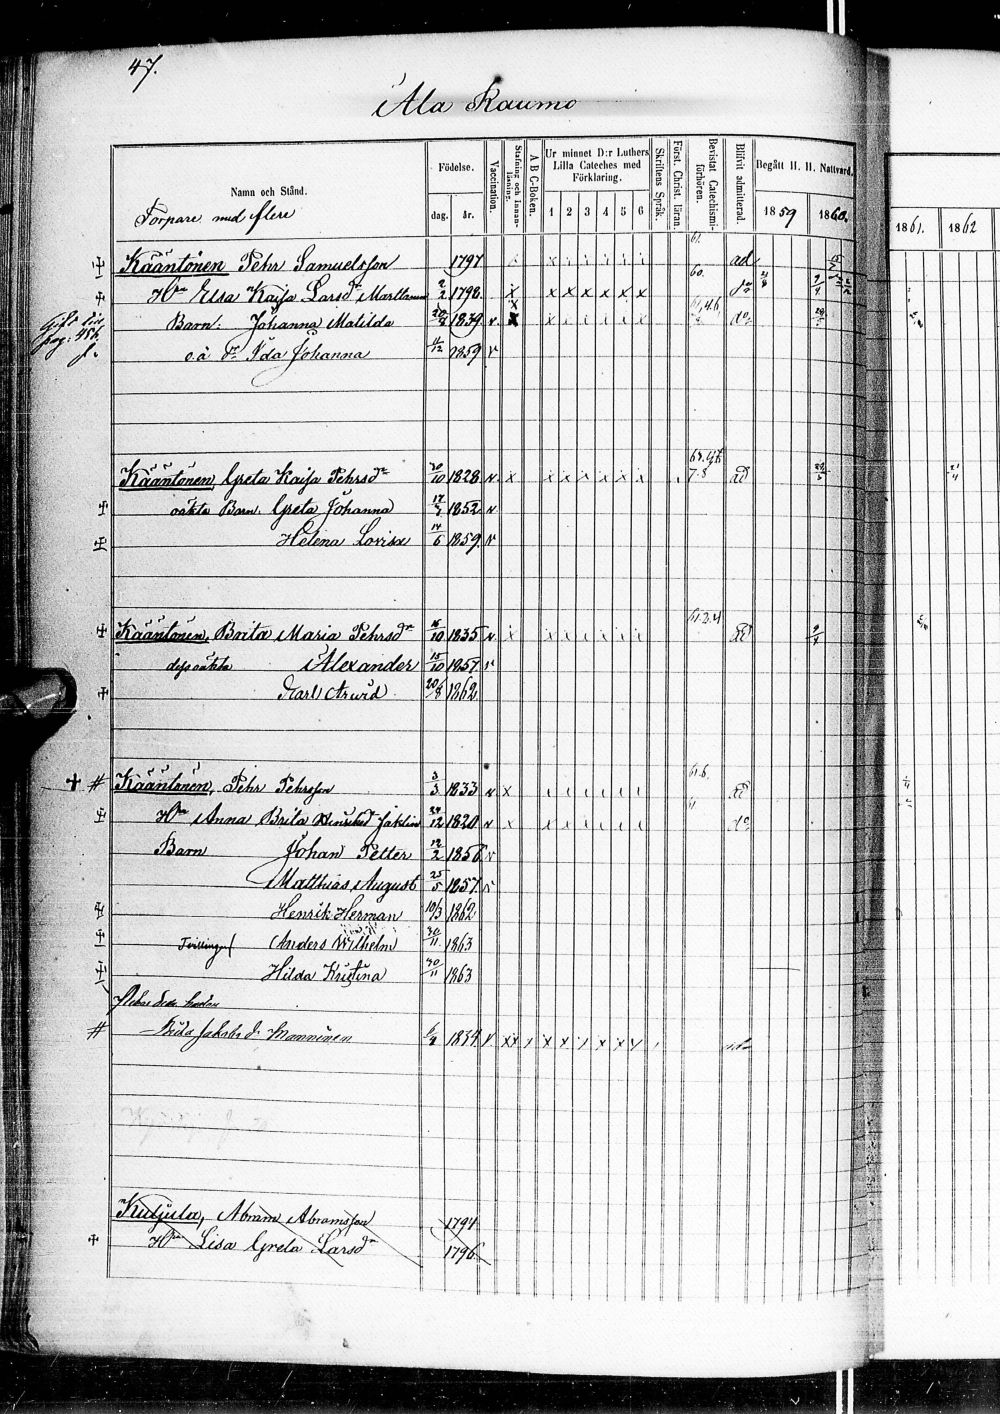 47.
Ala Raumo
Namn och Stånd.
Torpare med flere
Födelse.
dag. år.
Vaccination.
Stafning och Innan-läsning.
A B C-Boken.
Ur minnet D:r Luthers Lilla Cateches med Förklaring.
1 2 3 4 5 6
Skriftens Språk.
Först. Christ. läran.
Bevistat Catechismi-förhören.
Blifvit admitterad.
Begått H. H. Nattvard.
1859 1860.
1861. 1862
Kääntönen Pehr Samuelsson 1797 61. ad
Hu Elsa Kaija Larsdr Marttinen 2/2 1798. x x x x x x x 60. do
Gift här pag: 456.
Barn: Johanna Matilda 1839 v. x do
o.ä. dr Ida Johanna 4/12 1859 v
Kääntönen, Greta Kaija Pehrsdr 30/10 1828 v. x x x x x x x 7.8 ad
oäkta Barn. Greta Johanna 1852 v
Helena Lovisa 14/6 1859 v
Kääntönen, Brita Maria Pehrsdr 16/10 1835 v. x 61.2.4 ad
dess oäkta Alexander 15/10 1857 v
Karl Arwid 20/8 1862
Kääntönen, Pehr Pehrsson 3/3 1833 v x 61.6. ad
Hu Anna Brita Henriksd Jaklin 24/12 1820 v x 61 do
Barn Johan Petter 12/2 1856 v
Matthias August 25/5 1857 v
Henrik Herman 10/3 1862
Tvillingar Anders Wilhelm 30/11 1863
Hilda Kristina 30/11 1863
Brita Jakobs dr Manninen 6/2 1834 v. xx
Kutjula, Abram Abramsson 1794
Hu Lisa Greta Larsdr 1796